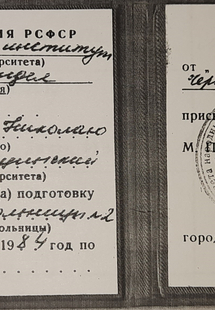 ИЯ РСФСР
институт
ерситета)
я)
Николаю
о)
ерситета)
а) подготовку
больницы №2
ольницы)
1984 год по
от
прис
М. П.
город